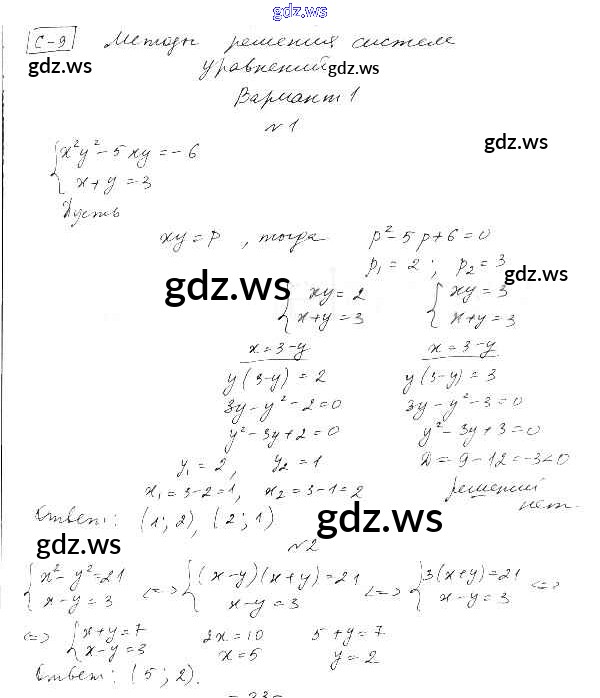 gdz.ws
С-9 Методы решения систем
уравнений
gdz.ws gdz.ws
Вариант 1
№1
gdz.ws
{x²y² - 5xy = -6
x + y = 3
Пусть
xy = p, тогда p² - 5p + 6 = 0
p₁ = 2; p₂ = 3
gdz.ws gdz.ws
{xy = 2 {xy = 3
x + y = 3 x + y = 3
x = 3 - y x = 3 - y
y(3 - y) = 2 y(3 - y) = 3
3y - y² - 2 = 0 3y - y² - 3 = 0
y² - 3y + 2 = 0 y² - 3y + 3 = 0
y₁ = 2, y₂ = 1 D = 9 - 12 = -3 < 0
x₁ = 3 - 2 = 1, x₂ = 3 - 1 = 2 решений
нет.
Ответ: (1; 2), (2; 1)
gdz.ws gdz.ws
№2
{x² - y² = 21 <=> {(x - y)(x + y) = 21 <=> {3(x + y) = 21 <=>
x - y = 3 x - y = 3 x - y = 3
<=> {x + y = 7 2x = 10 5 + y = 7
x - y = 3 x = 5 y = 2
Ответ: (5; 2).